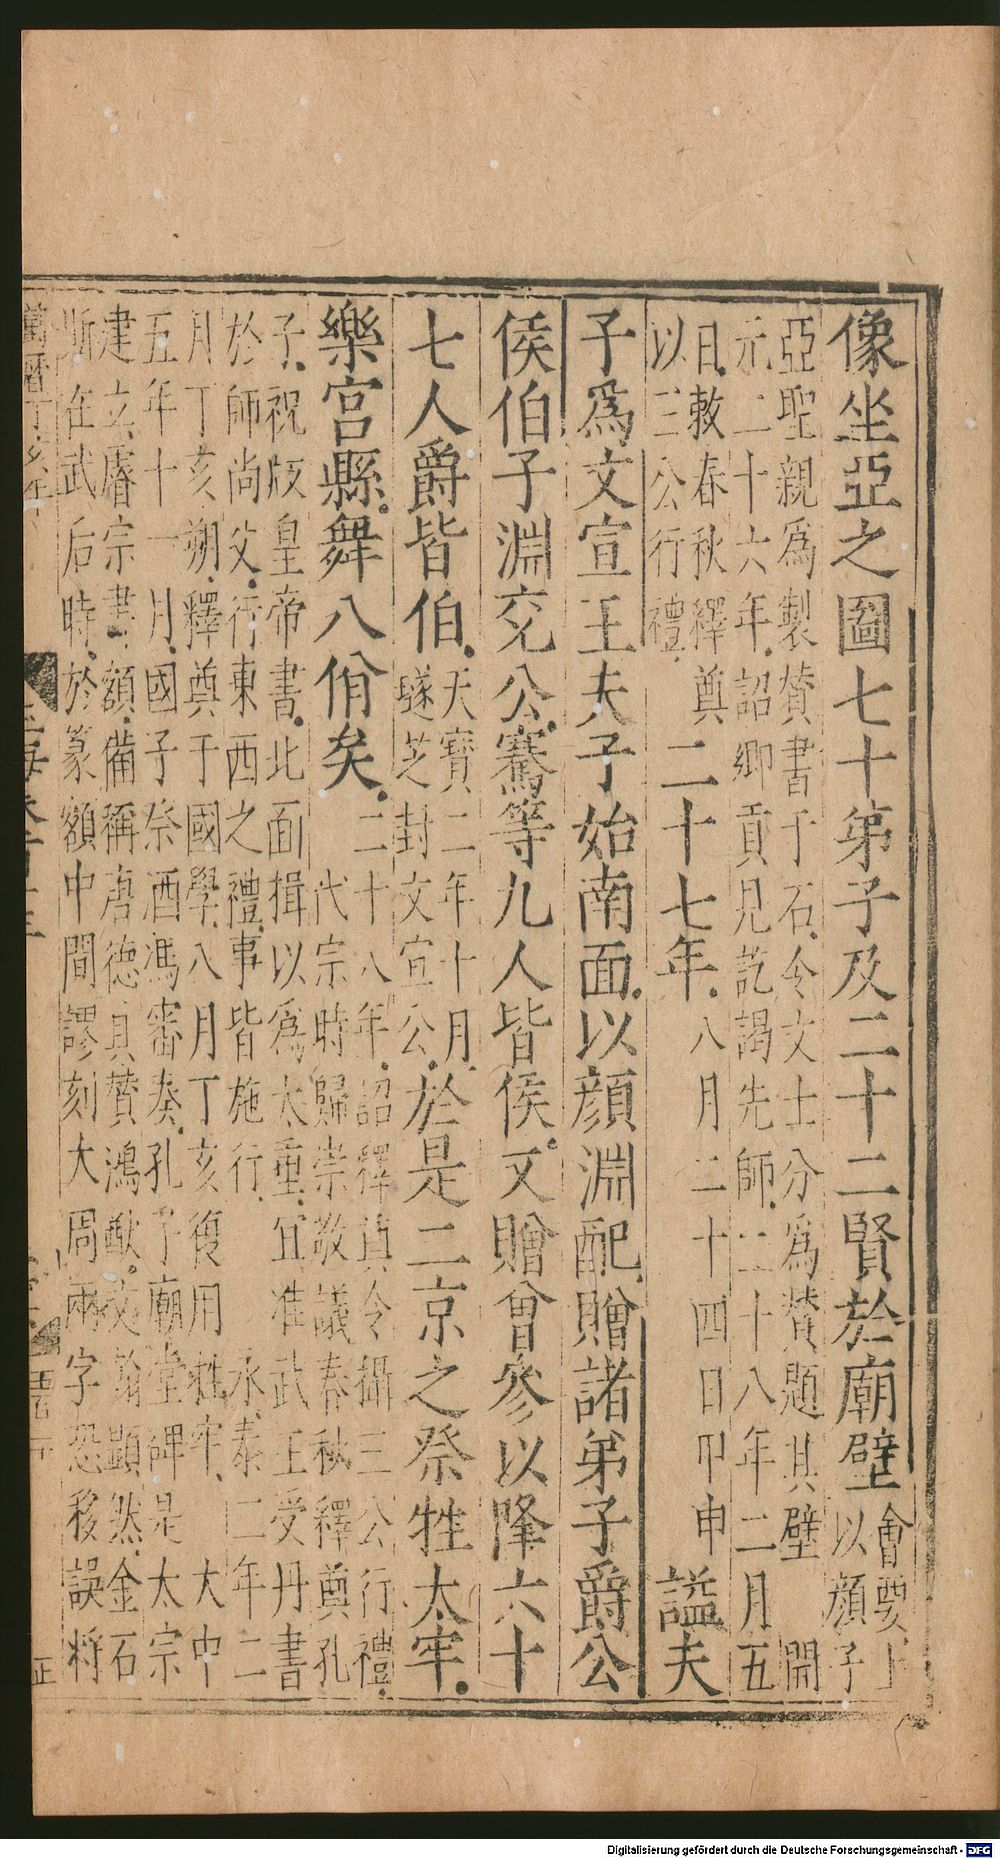 像坐亞之圖七十弟子及二十二賢於廟壁會要上
以顔子
亞聖親爲製賛書于石令文士分爲賛題其壁開
元二十六年詔鄉貢見訖謁先師二十八年二月五
日敕春秋釋奠
以三公行禮二十七年八月二十四日甲申謚夫
子爲文宣王夫子始南面以顔淵配贈諸弟子爵公
侯伯子淵兖公騫等九人皆侯又贈曾參以降六十
七人爵皆伯天寶二年十月
遂芝封文宣公於是二京之祭牲太牢
樂宫縣舞八佾矣二十八年詔釋奠令攝三公行禮
代宗時歸崇敬議春秋釋奠孔
子祝版皇帝書北面揖以爲太重宜准武王受丹書
於師尚父行東西之禮事皆施行永泰二年二
月丁亥朔釋奠于國學八月丁亥復用牲牢大中
五年十一月國子祭酒馮審奏孔子廟堂碑是太宗
建立睿宗書額備稱唐德具賛鴻猷文翰顯然金石
斯在武后時於篆額中間謬刻大周兩字恐移誤將
萬曆丁亥年
正
Digitalisierung gefördert durch die Deutsche Forschungsgemeinschaft - DFG